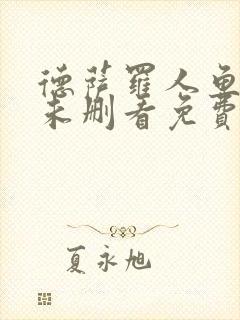 德萨罗人鱼
未删看免費
夏永旭